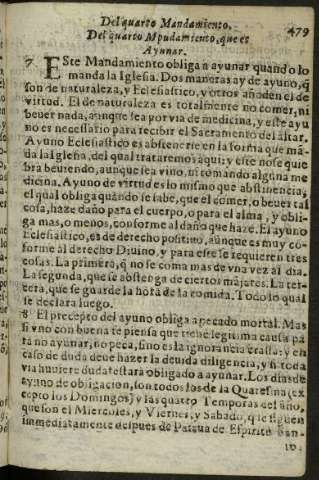 Del quarto Mandamiento.
479
Del quarto Mpudamiento, que es
Ayunar.
7 ESte Mandamiento obliga a ayunar quando lo
manda la Iglesia. Dos maneras ay de ayuno, q̃
son de naturaleza, y Eclesiastico, y otros añaden el de
virtud. El de naturaleza es totalmente no comer, ni
beuer nada, aunque sea por via de medicina, y este ayu
no es necessario para recibir el Sacramento del altar.
Ayuno Eclesiastico es abstenerse en la forma que mã-
da la Iglesia, del qual trataremos aqui: y este no se quie
bra beuiendo, aunque sea vino, ni comando alguna me
dicina. Ayuno de virtud es lo mismo que abstinencia,
el qual obliga quãndo se sabe, que el comer, o beuer tal
cosa, haze daño para el cuerpo, o para el alma, y obli-
ga mas, o menos, conforme al daño que haze. El ayuno
Eclesiastico, es de derecho positiuo, aunque es muy cõ-
forme al derecho Diuino, y para este se requieren tres
cosas. La primera, q̃ no se coma mas de vna vez al dia.
La segunda, que se abstenga de ciertos mãjares. La ter-
cera, que se guarde la hora de la comida. Todo lo qual
se declara luego.
8 El precepto del ayuno obliga a pecado mortal. Mas
si vno con buena fe piensa que tiene legitima causa pa
ra no ayunar, no peca, sino es la ignorancia crassa: y en
caso de duda deue hazer la deuida diligencia, y si toda
via huuiere duda estará obligado a ayunar. Los dias de
ayuno de obligacion, son todos los de la Quaresma (ex
cepto los Domingos) y las quatro Temporas del año,
que son el Miercoles, y Viernes, y Sabado, que siguen
inmediatamente despues de Pascua de Espiritu San-
to.